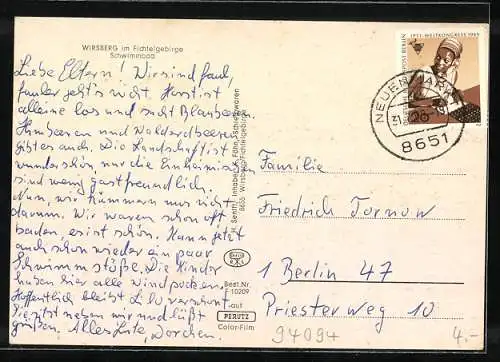 WIRSBERG im Fichtelgebirge
Schwimmbad
Liebe Eltern! Wir sind faul,
fauler geht's nicht. Horst ist
alleine los und sucht Blaubeeren.
Himbeeren und Walderdbeeren
gibt es auch. Die Landschaft ist
wunderschön nur die Einheimischen
sind wenig gastfreundlich.
Nun, wir kümmern uns nicht
darum. Wir waren schon oft
baden, es ist schön. Kann jetzt
auch schon wieder ein paar
Schwimmstöße. Die Kinder
haben hier alle Windpocken.
Hoffentlich bleibt Lilo verschont.
Sie sitzt neben mir und läßt
grüßen. Alles Liebe, Dorchen.
H. Senfft, Inhaber K. Föhn, Schreibwaren
8655 Wirsberg/Fichtelgebirge
Best.Nr.
F 10209
auf
PERUTZ
Color-Film
1951 - WELTKONGRESS 1985
POST BERLIN
NEUENMARKT
8651
Familie
Friedrich Tornow
1 Berlin 47
Priesterweg 10
94094
4.-